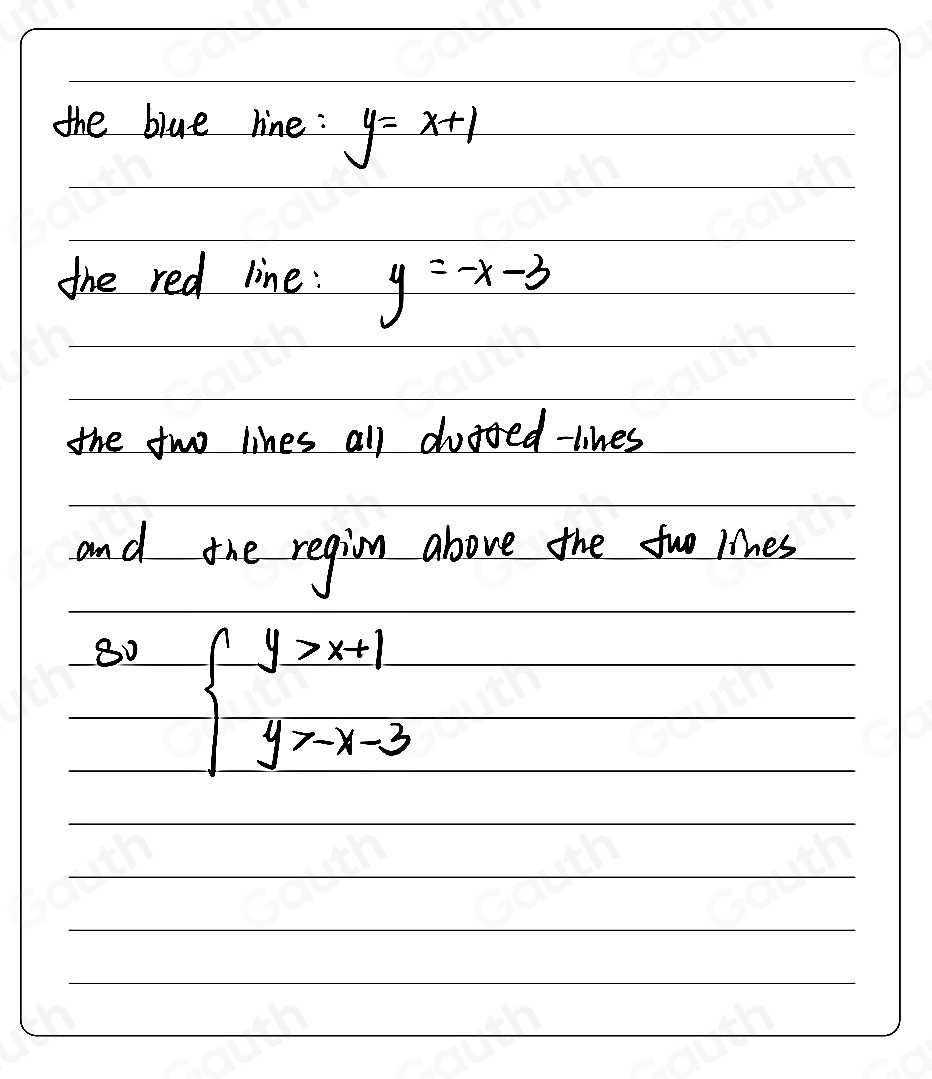 the blue line: y = x+1
the red line: y = -x-3
the two lines all dotted-lines
and the region above the two lines
so { y > x+1
y > -x-3